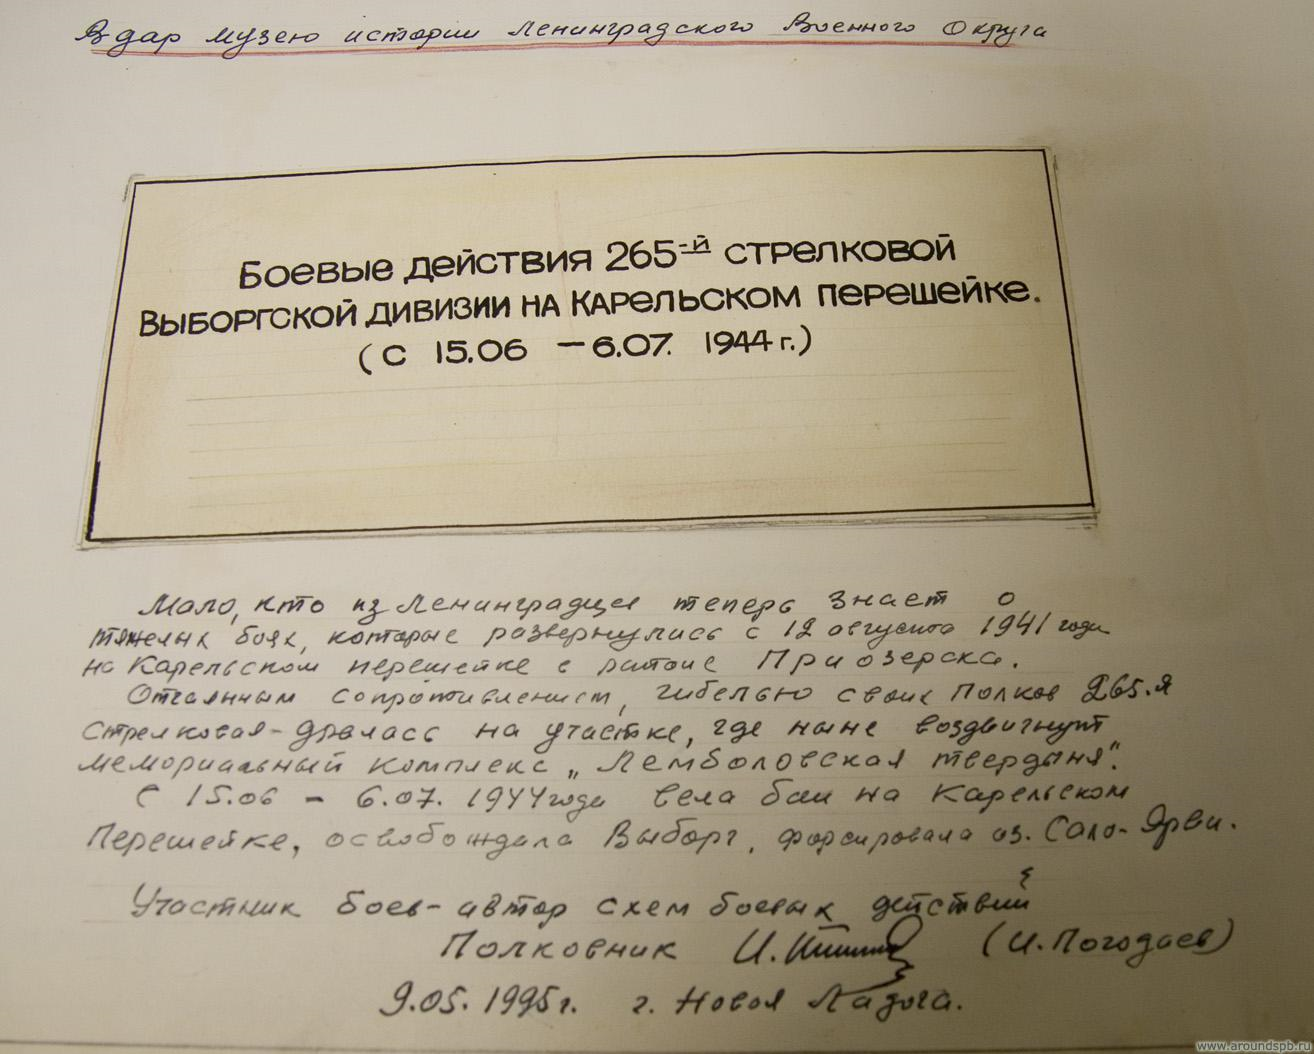 В дар музею истории Ленинградского Военного Округа
Боевые действия 265-й стрелковой
Выборгской дивизии на Карельском перешейке.
(с 15.06 – 6.07. 1944 г.)
Мало, кто из Ленинградцев теперь знает о
тяжелых боях, которые развернулись с 12 августа 1941 года
на Карельском перешейке в районе Приозерска.
Отчаянным сопротивлением, гибелью своих полков 265.я
стрелковая - дралась на участке, где ныне воздвигнут
мемориальный комплекс „Лемболовская твердыня".
С 15.06 – 6.07. 1944 года вела бои на Карельском
Перешейке, освобождала Выборг, форсировала оз. Сало-Ярви.
Участник боев - автор схем боевых действий
Полковник И. (И. Погодаев)
9.05. 1995 г. г. Новая Ладога.
www.aroundspb.ru